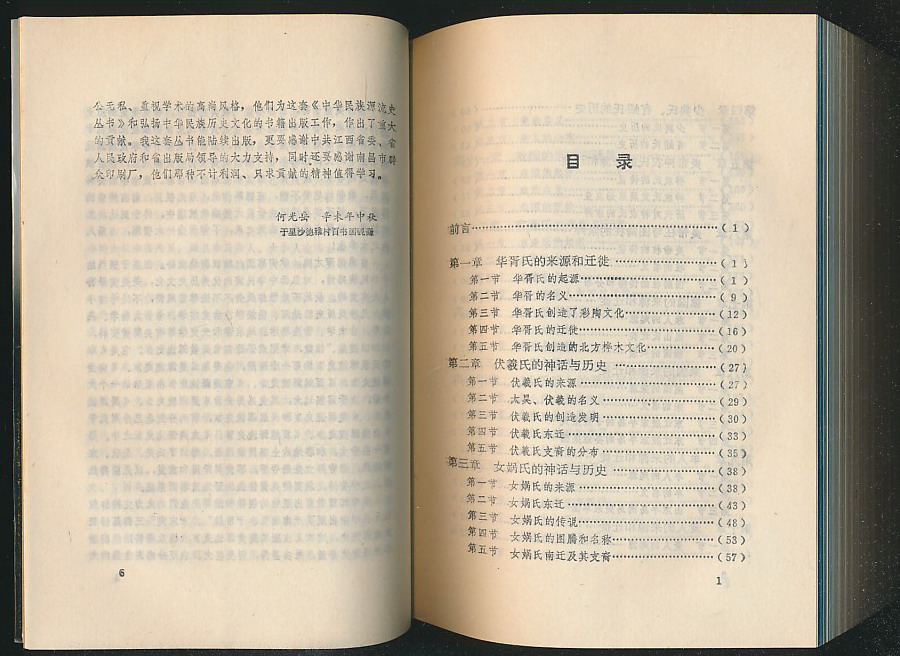 公无私、重视学术的高尚风格，他们为这套《中华民族源流史
丛书》和弘扬中华民族历史文化的书籍出版工作，作出了重大
的贡献。我这套丛书能陆续出版，更要感谢中共江西省委、省
人民政府和省出版局领导的大力支持，同时还要感谢南昌市群
众印刷厂，他们那种不计利润、只求贡献的精神值得学习。
何光岳 辛未年中秋
6
目 录
前言……………………………………………( 1 )
第一章 华胥氏的来源和迁徙 ……………………( 1 )
第一节 华胥氏的起源……………………………( 1 )
第二节 华胥的名义………………………………( 9 )
第三节 华胥氏创造了彩陶文化…………………(12)
第四节 华胥氏的迁徙……………………………(16)
第五节 华胥氏创造的北方桦木文化……………(20)
第二章 伏羲氏的神话与历史 ……………………(27)
第一节 伏羲氏的来源……………………………(27)
第二节 太昊、伏羲的名义………………………(29)
第三节 伏羲氏的创造发明………………………(30)
第四节 伏羲氏东迁………………………………(33)
第五节 伏羲氏支裔的分布………………………(35)
第三章 女娲氏的神话与历史 ……………………(38)
第一节 女娲氏的来源……………………………(38)
第二节 女娲氏东迁………………………………(43)
第三节 女娲氏的传说……………………………(48)
第四节 女娲氏的图腾和名称……………………(53)
第五节 女娲氏南迁及其支裔……………………(57)
1